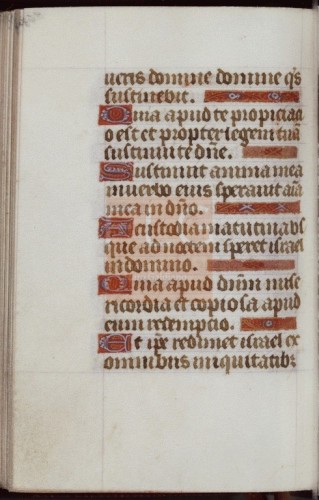 ueris domine domine q̄s
sustinebit.
Quia apud te propiciaci
o est et propter legem tuā
sustinui te dn̄e.
Sustinuit anima mea
in uerbo eius sperauit aīa
mea in dn̄o.
A custodia matutina us
que ad noctem speret israel
in domino.
Quia apud dn̄m mise
ricordia et copiosa apud
eum redempcio.
Et ip̄e redimet israel ex
omnibus iniquitatibꝫ